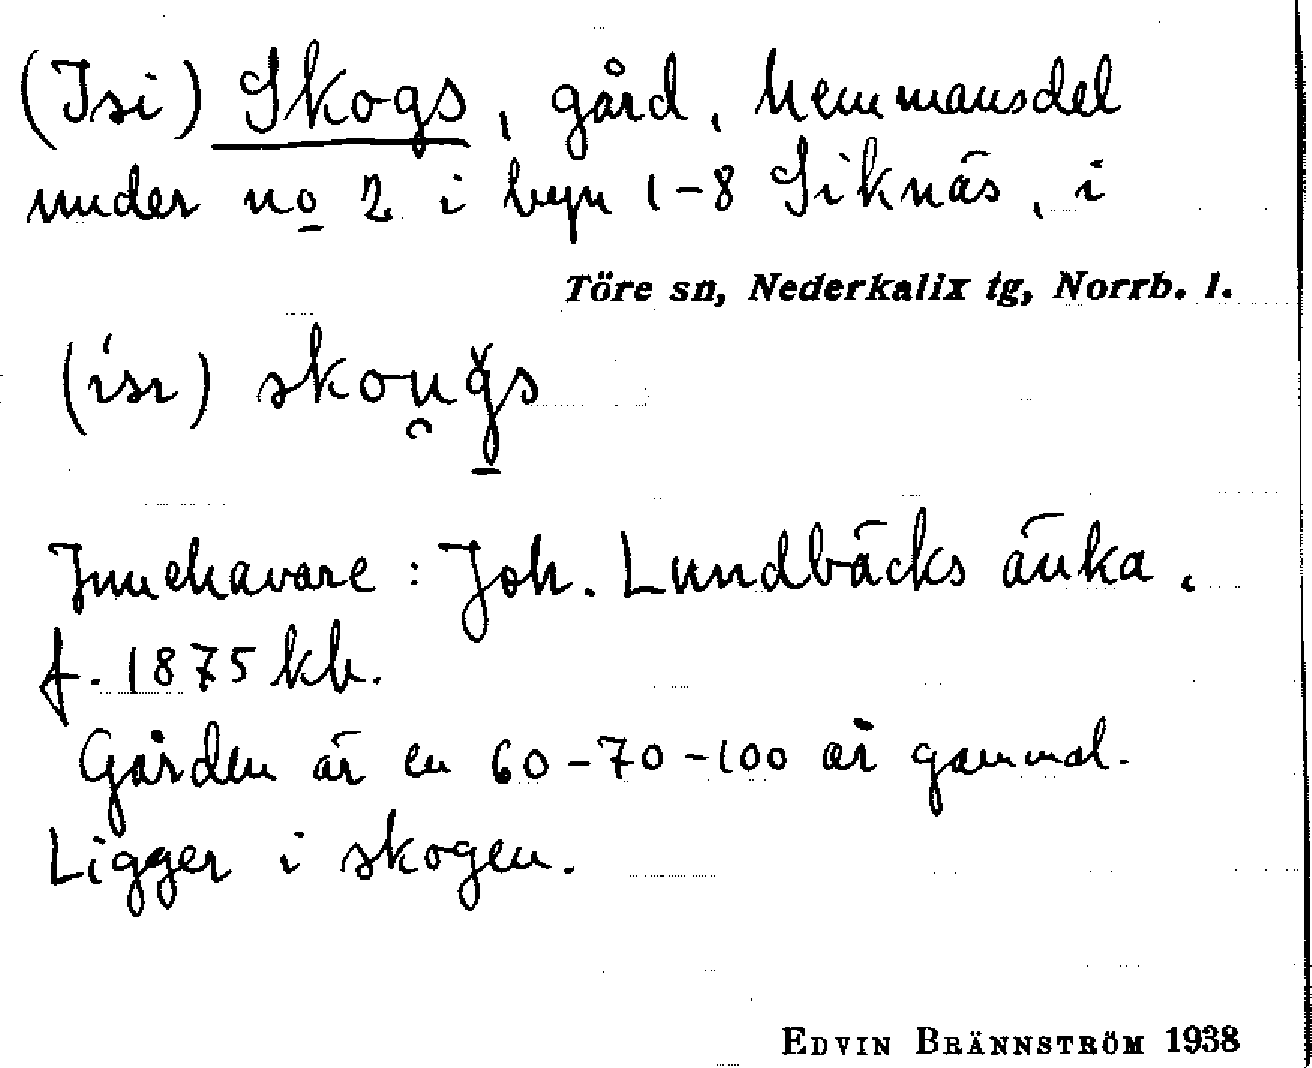 (Isi) Skogs, gård, hemmansdel
under no 2 i byn 1-8 Siknäs, i
Töre sn, Nederkalix tg, Norrb. l.
(ísı) skou̯g̬s
Innehavare: Joh. Lundbäcks änka,
f. 1875 kb.
Gården är en 60-70-100 år gammal.
Ligger i skogen.
EDVIN BRÄNNSTRÖM 1938